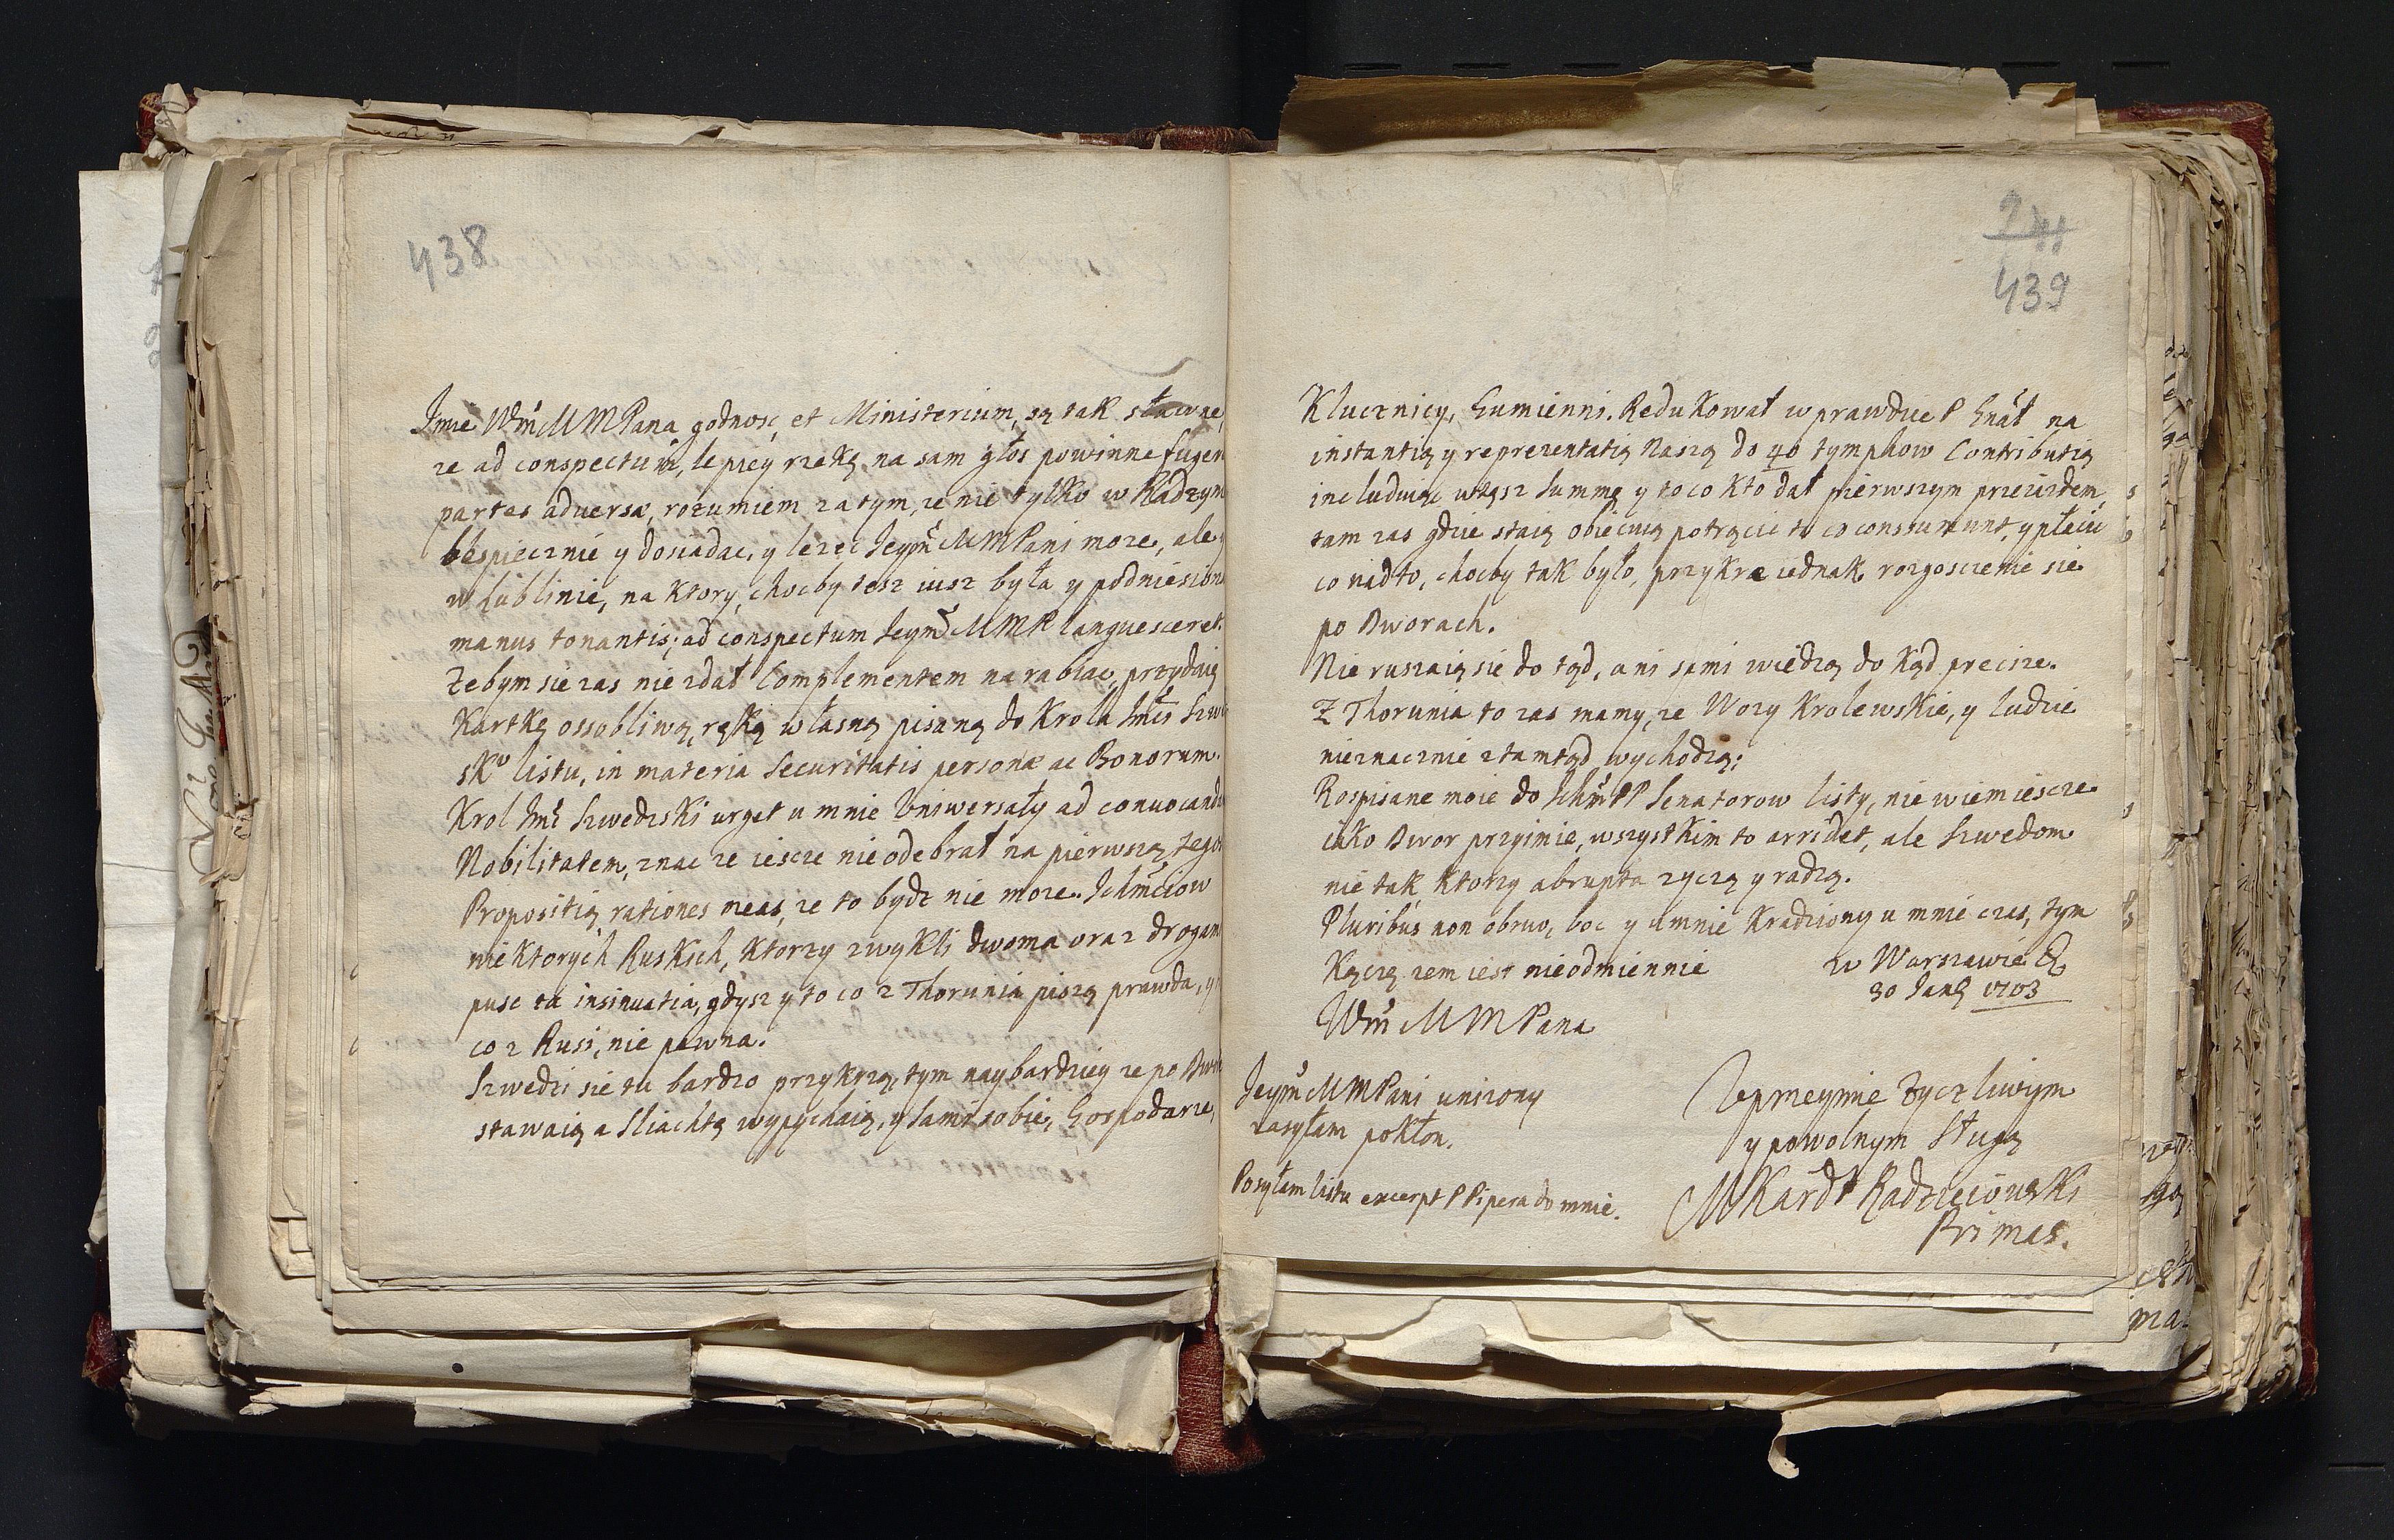 438
Imie Wm̃ MMPana godnosc, et Ministerium, są tak sławne,
ze ad conspectum, lepiey rzekę, na sam głos powinne fugere
partes adversæ, rozumiem zatym, ze nie tylko w Radzym
bespiecznie y dosiadac, y lezec Jeym̃ MMPani moze, ale y
w Lublinie, na ktory, chocby tesz iusz była y podniesiona
manus tonantis; ad conspectum Jeym̃ MMP languesceret.
Zebym sie zas nie zdał Complementem narabiac, przydaię
Kartkę ossobliwą, ręką własną pisaną do Krola Jmści Szwe
sk° listu, in materia Securitatis personæ ac Bonorum.
Krol Jmć Szwedzski urget u mnie Uniwersały ad convocanda
Nobilitatem, znac ze iescze nie odebrał na pierwszą tego
Propositią rationes meas, ze to bydz nie moze. Ichmciow
niektorych Ruskich, ktorzy zwykli dwoma oraz drogam
pusc ta insinuatia, gdysz y to co z Thorunia piszą prawda, y
co z Rusi, nie pewna.
Szwedzi sie tu bardzo przykrzą, tym naybardziey ze po Dwo
stawaią a Sliachtę wypychaią, y sami sobie, Gospodarze,
2
439
Klucznicy, Gumienni. Redukował wprawdzie P Gnał na
instantią y reprezentatią naszą do 40 tymphow Contributią
includuiąc wtęsz summę y to co kto dał pierwszym przeiizdem,
tam zas gdzie staią obiecuią potrącic to co consumunt, y płacic
co nadto, chocby tak było, przykre iednak rozgosczenie sie
po Dworach.
Nie ruszaią sie do tąd, ani sami wiedzą do kąd precise.
Z Thorunia to zas mamy, ze Wozy Krolewskie, y ludzie
nieznacznie ztamtąd wychodzą;
Rospisane moie do Ichm̃ PP Senatorow listy, nie wiem iescze
iako Dwor przyimie, wszystkim to arridet, ale Szwedom
nie tak ktorzy abrupta zyczą y radzą.
Pluribus non obruo, boc y umnie kradziony u mnie czas, tym
Kączę zem iest nieodmiennie
w Warszawie D
30 Jan 1703
Wm̃ MMPana
Jeym̃ MMPani unizony
zasyłam pokłon.
Uprzeymie zyczliwym
y powolnym Sługą
Posyłam listu excerpt P Pipera do mnie.
MKardł Radzieiowski
Primas.